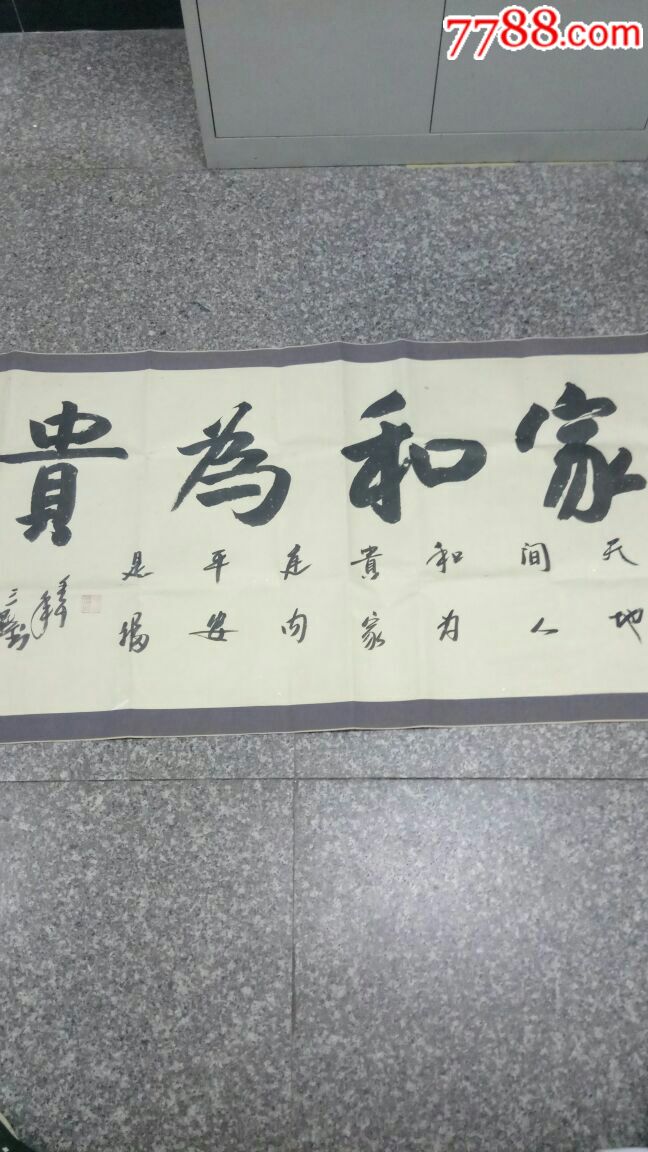 7788.com
家和為貴
天地
间人
和为
貴家
内
平安
是福